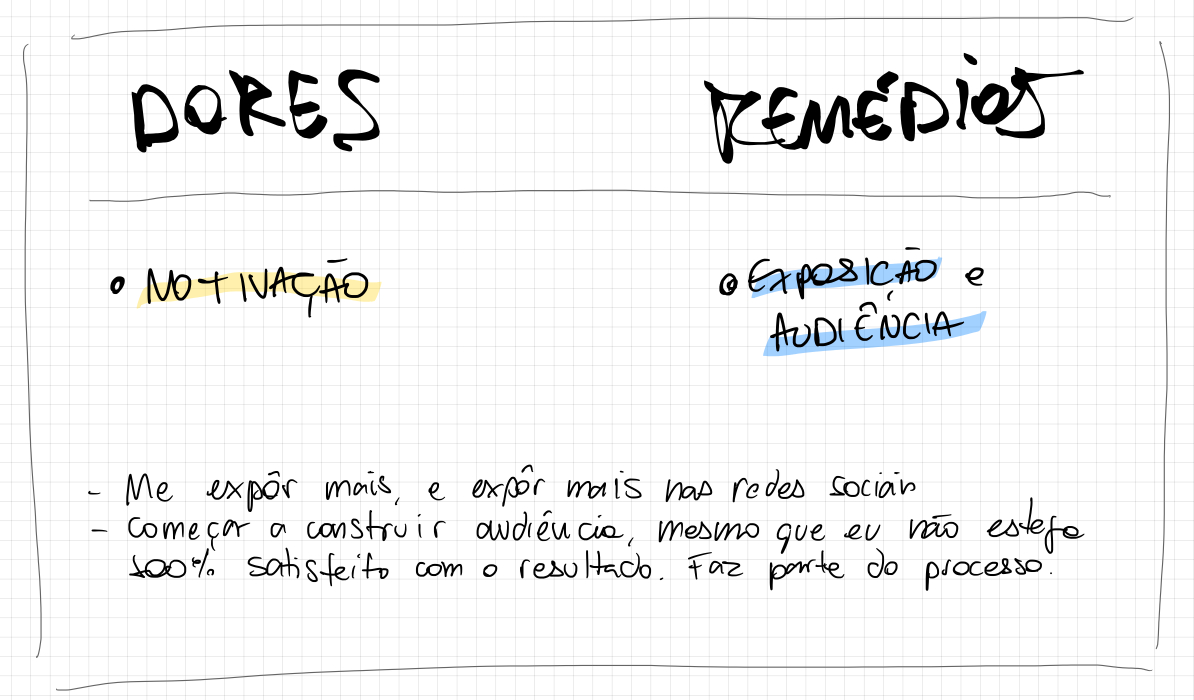 DORES
REMÉDIOS
• MOTIVAÇÃO
• EXPOSIÇÃO e
AUDIÊNCIA
- Me expôr mais, e expôr mais nas redes sociais
- Começar a construir audiência, mesmo que eu não esteja
100% satisfeito com o resultado. Faz parte do processo.